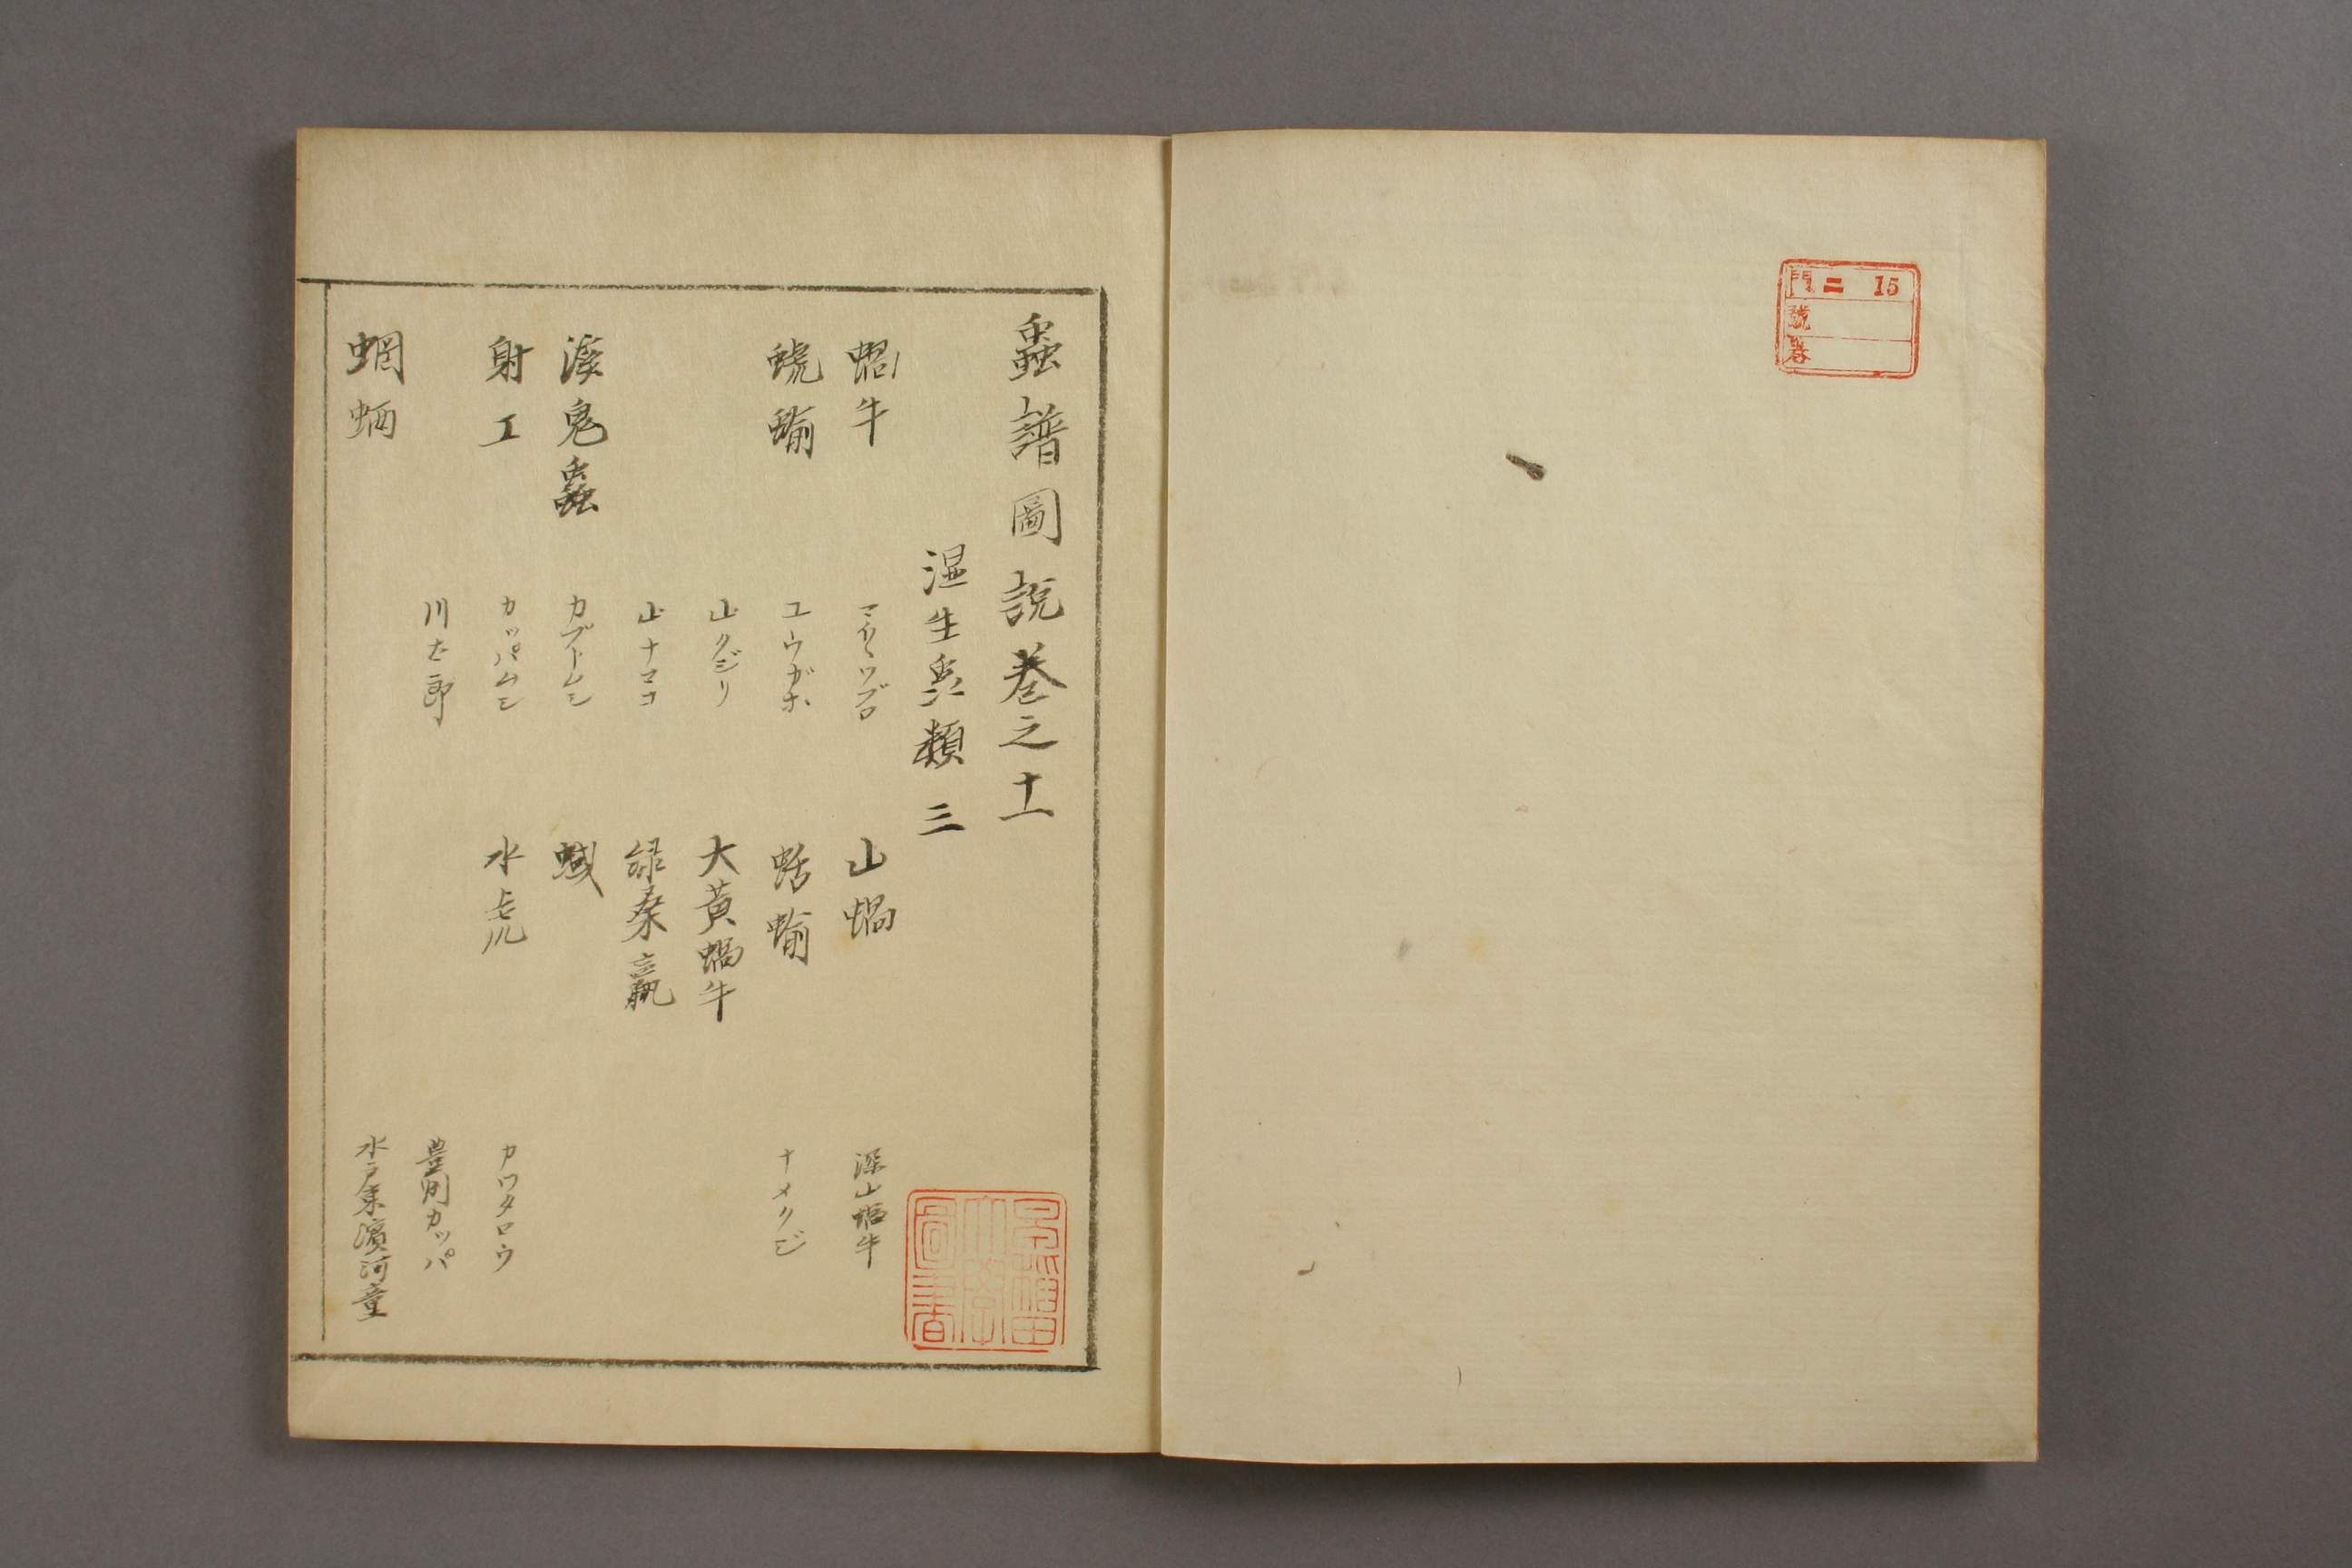 門 二 15
號
番
蟲譜圖説巻之十一
湿生蟲類 三
蝸牛 マイ〱ツブロ 山蝸 深山蝸牛
螔蝓 ユウガホ 蛞蝓 ナメクジ
山クジリ 大黄蝸牛
山ナマコ 緑桑蠃
溪鬼蟲 カブトムシ 蜮
射工 カッパムシ 水虎 カワタロウ
川太郎 豊間カッパ
蝄蜽 水戸東濱河童
早稲田大學圖書